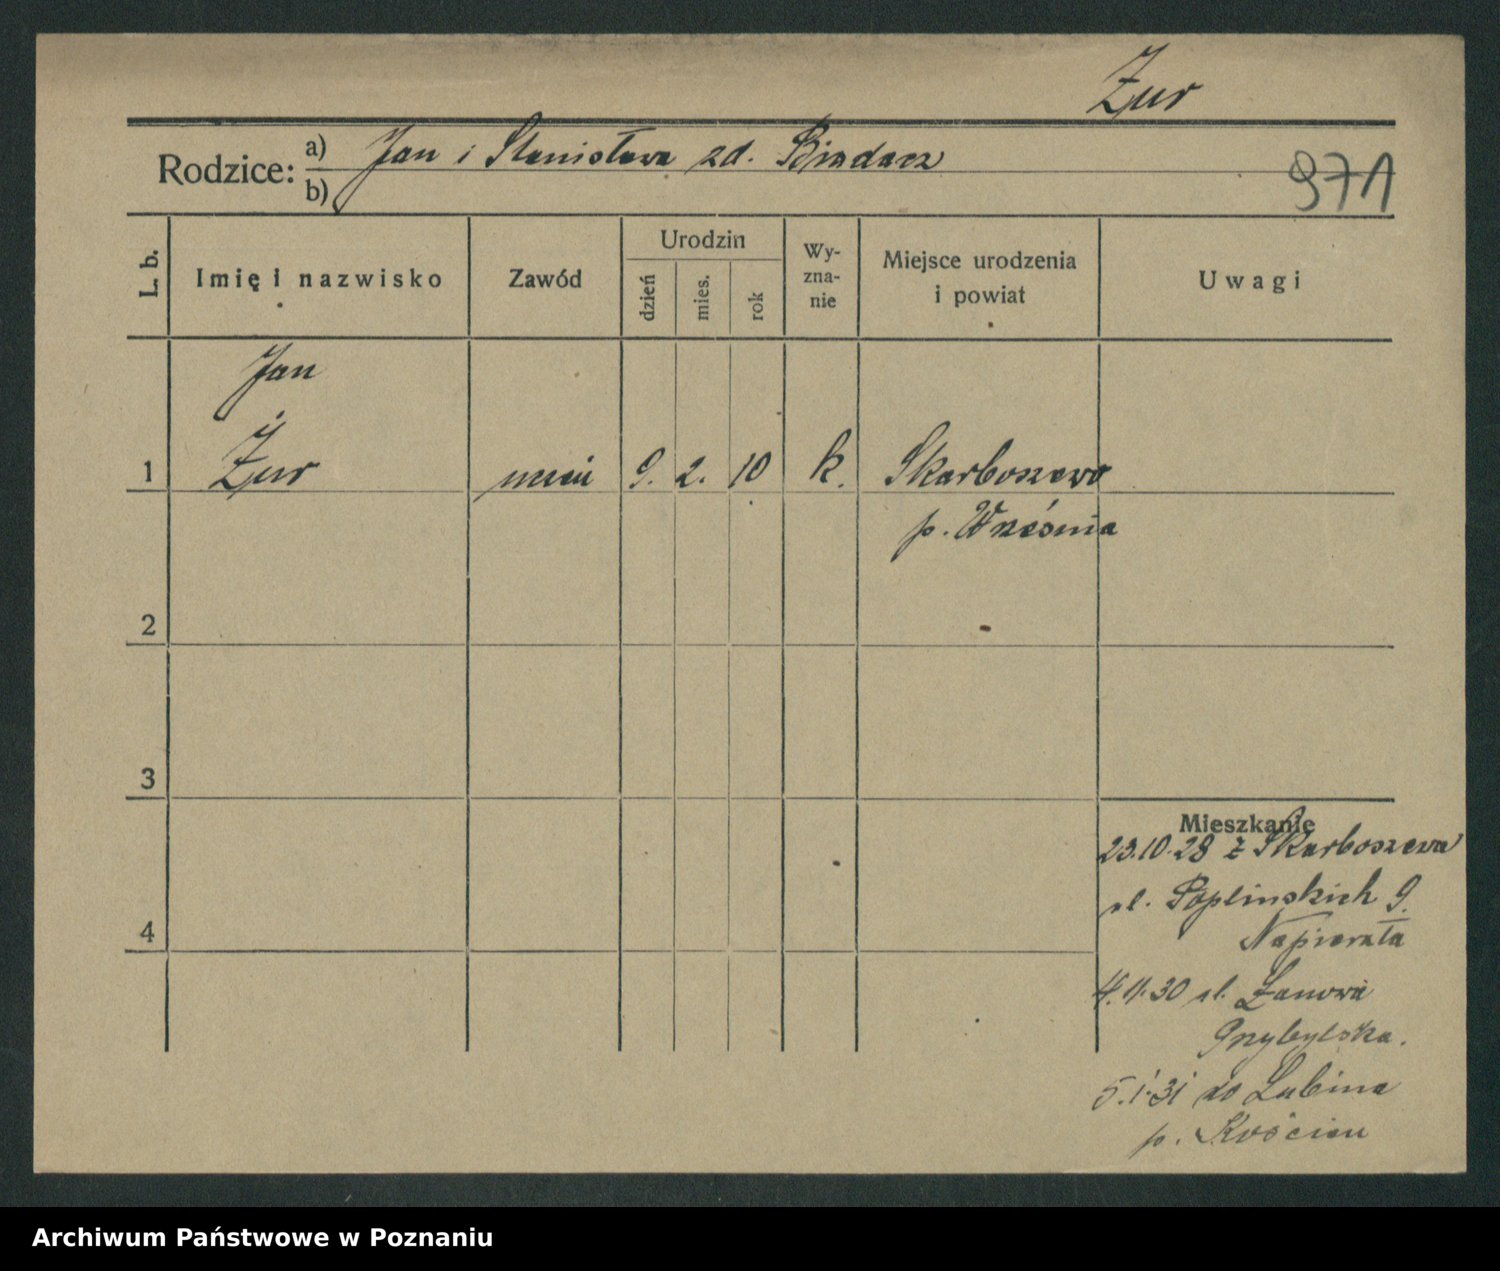 Żur
Rodzice: a) Jan i Stanisława zd. Biadacz
b)
971
L. b.
Imię i nazwisko
Zawód
Urodzin
dzień
mies.
rok
Wy-
zna-
nie
Miejsce urodzenia
i powiat
Uwagi
Jan
1 Żur uczeń 9. 2. 10 k. Skarboszewo
p. Września
2
3
Mieszkanie
23.10.28 z Skarboszewa
ul. Poplińskich 9.
4
Napierała
4.11.30 ul. Łanowa
Przybylska.
5.1.31 do Lubina
p. Kościan
Archiwum Państwowe w Poznaniu